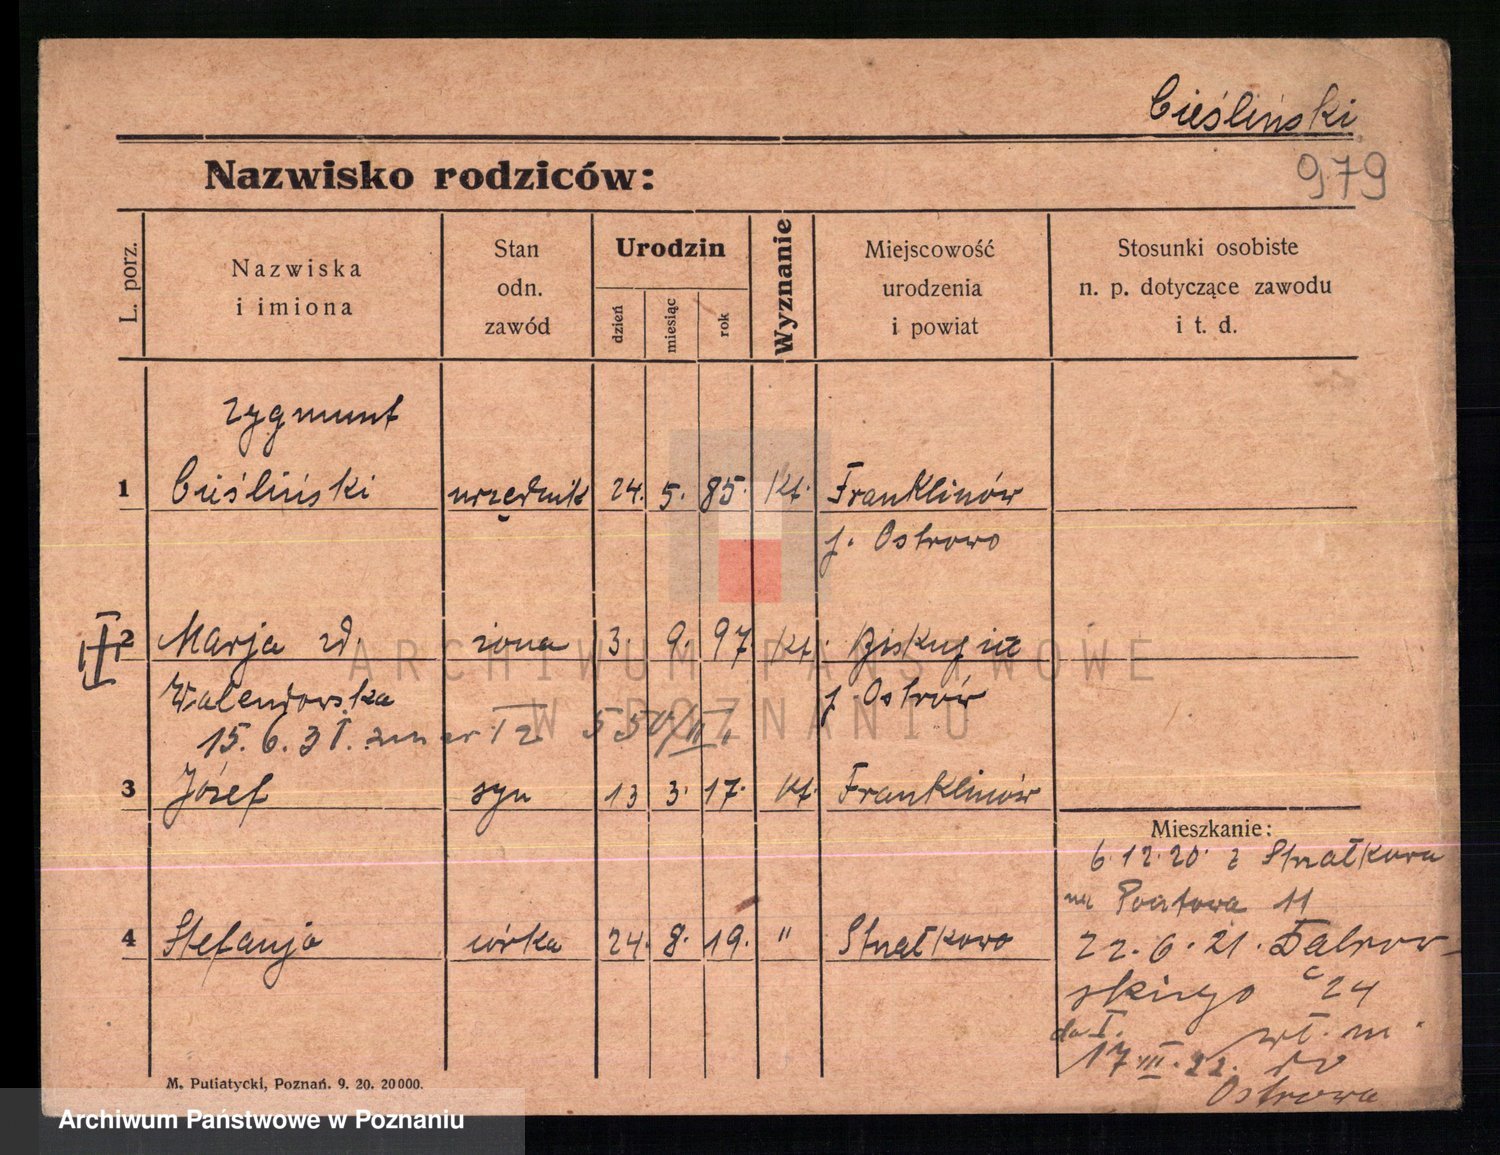 Cieśliński
979
Nazwisko rodziców:
L. porz.
Nazwiska
i imiona
Stan
odn.
zawód
Urodzin
dzień
miesiąc
rok
Wyznanie
Miejscowość
urodzenia
i powiat
Stosunki osobiste
n. p. dotyczące zawodu
i t. d.
Zygmunt
1 Cieśliński urzędnik 24. 5. 85. kt. Franklinów
p. Ostrowo
2 Marja zd. żona 3. 9. 97 kt. Biskupice
Walendowska p. Ostrów
15. 6. 31.
3 Józef syn 13 3. 17. kt. Franklinów
Mieszkanie:
6.12.20. z Strzałkowa
na 11
4 Stefanja córka 24. 8. 19. " Strzałkowo
22. 6. 21. Dąbrow-
skiego 24
wł. m.
17 III. 22. do
Ostrowa
M. Putiatycki, Poznań. 9. 20. 20000.
ARCHIWUM PAŃSTWOWE
W POZNANIU
Archiwum Państwowe w Poznaniu